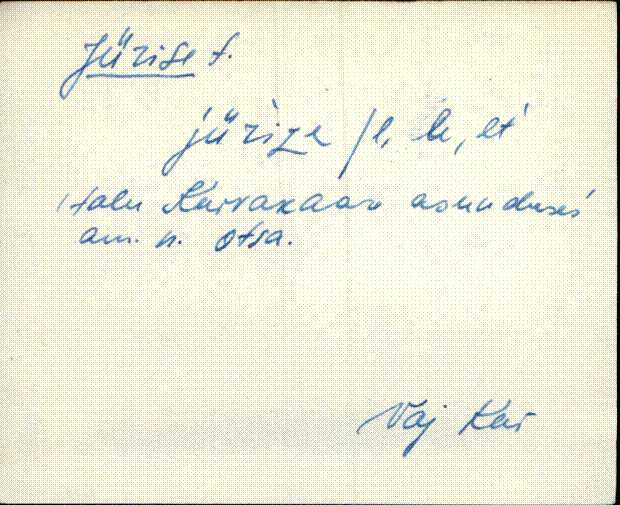 Jürise t.
jürize /l, le, lt
talu Kurvakaare asunduses
am. n. Otsa.
Vaj Kur